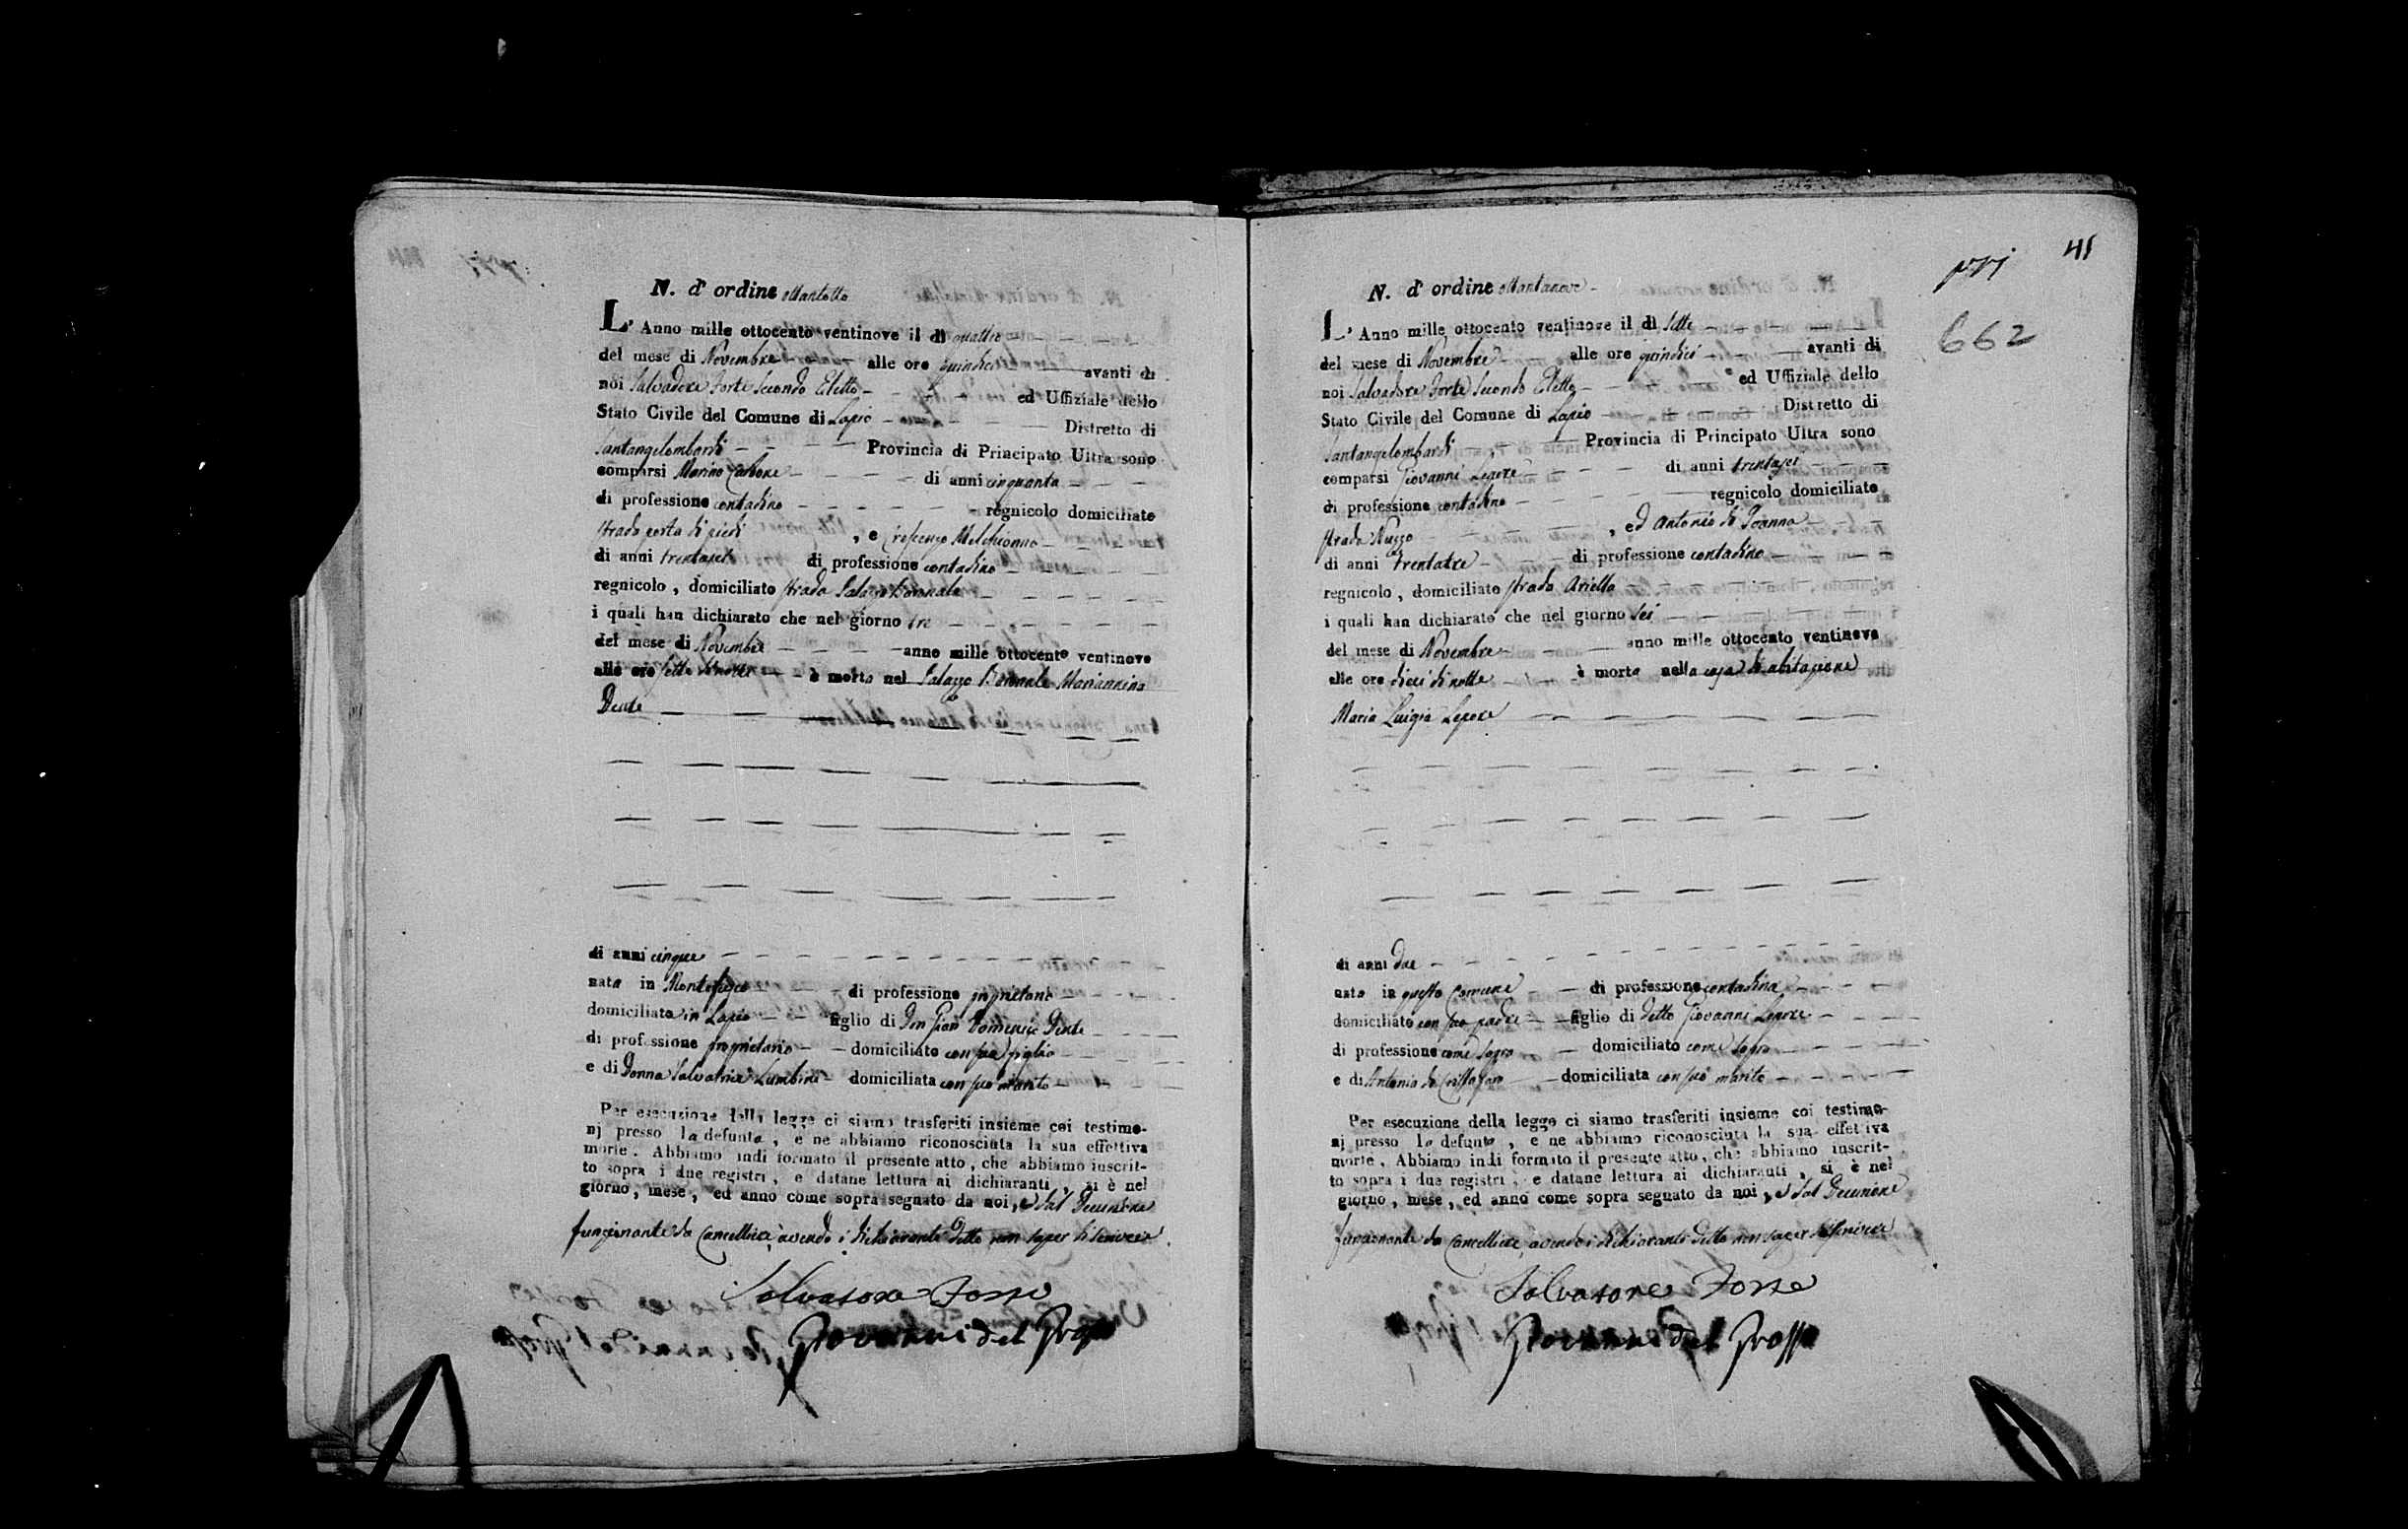 N. d' ordine ottantotto
L' Anno mille ottocento ventinove il dì quattro
del mese di Novembre alle ore quindici avanti di
noi Salvadore Forte Secondo Eletto ed Uffiziale dello
Stato Civile del Comune di Lapio Distretto di
Santangelombardi Provincia di Principato Ultra sono
comparsi Marino Carbone di anni cinquanta
di professione contadino regnicolo domiciliato
strada porta di piedi , e Crescenzo Melchionno
di anni trentasei di professione contadino
regnicolo , domiciliato strada Palazzo Baronale
i quali han dichiarato che nel giorno tre
del mese di Novembre anno mille ottocento ventinove
alle ore sette di notte è morta nel Palazzo Baronale Mariannina
Dente
di anni cinque
nata in Montefusco di professione proprietaria
domiciliata in Lapio figlio di Don Gian Domenico Dente
di professione proprietario domiciliato con sua figlia
e di Donna Salvatrice domiciliata con suo marito
Per esecuzione della legge ci siamo trasferiti insieme coi testimo-
nj presso la defunta , e ne abbiamo riconosciuta la sua effettiva
morte . Abbiamo indi formato il presente atto , che abbiamo inscrit-
to sopra i due registri , e datane lettura ai dichiaranti , si è nel
giorno , mese , ed anno come sopra segnato da noi , e dal Decurione
funzionante da Cancelliere, avendo i dichiaranti detto non saper di scrivere
Salvatore Forte
Giovanni del Grosso
41
662
N. d' ordine ottantanove
L' Anno mille ottocento ventinove il dì sette
del mese di Novembre alle ore quindici avanti di
noi Salvadore Forte Secondo Eletto ed Uffiziale dello
Stato Civile del Comune di Lapio Distretto di
Santangelombardi Provincia di Principato Ultra sono
comparsi Giovanni Lepore di anni trentasei
di professione contadino regnicolo domiciliato
strada , ed Antonio di Joanna
di anni trentatre di professione contadino
regnicolo , domiciliato strada Ariella
i quali han dichiarato che nel giorno sei
del mese di Novembre anno mille ottocento ventinove
alle ore dieci di notte è morta nella casa di abitazione
Maria Luigia Lepore
di anni due
nata in questo Comune di professione contadina
domiciliato con suo padre figlio di detto Giovanni Lepore
di professione come sopra domiciliato come sopra
e di Antonia de Cristofaro domiciliata con suo marito
Per esecuzione della legge ci siamo trasferiti insieme coi testimo-
nj presso la defunta , e ne abbiamo riconosciuta la sua effettiva
morte . Abbiamo indi formato il presente atto , che abbiamo inscrit-
to sopra i due registri , e datane lettura ai dichiaranti , si è nel
giorno , mese , ed anno come sopra segnato da noi , e dal Decurione
funzionante da Cancelliere, avendo i dichiaranti detto non saper di scrivere
Salvatore Forte
Giovanni del Grosso